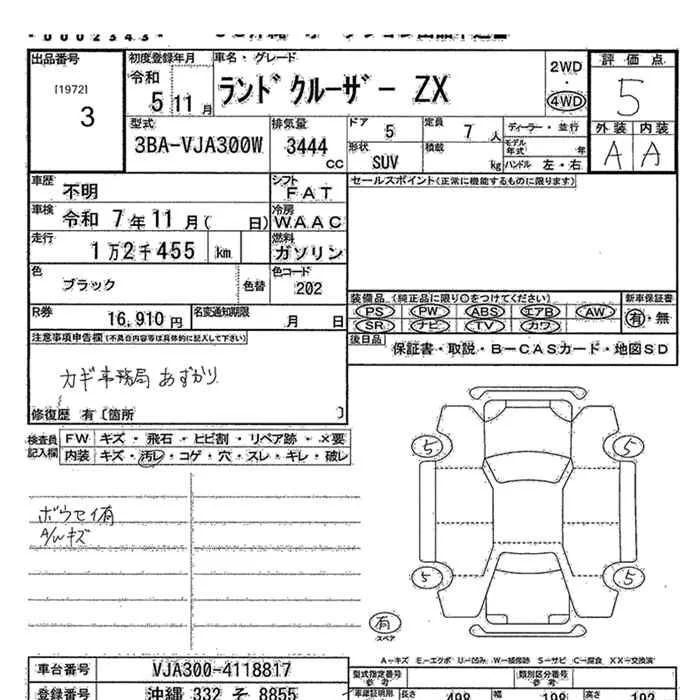 出品番号
[1972]
3
初度登録年月
令和
5年11月
車名・グレード
ランドクルーザー ZX
2WD
・
4WD
評価点
5
外装 内装
A A
型式
3BA-VJA300W
排気量
3444
cc
ドア 5
定員 7人
形状 SUV
積載 kg
ディーラー・並行
モデル年式 年
ハンドル 左・右
車歴 不明
シフト FAT
セールスポイント(正常に機能するものに限ります)
車検 令和 7年11月( 日)
冷房 WAAC
走行 1万2千455 km
燃料 ガソリン
色 ブラック
色替
色コード 202
装備品 (純正品に限り○をつけてください)
PS PW ABS エアB AW
SR ナビ TV カワ
新車保証書
有・無
R券 16,910円
名変通知期限 月 日
後日品 保証書・取説・B-CASカード・地図SD
注意事項申告欄(不具合内容等は具体的に記入して下さい)
カギ事務局あずかり
修復歴 有〔箇所 〕
検査員記入欄
FW キズ・飛石・ヒビ割・リペア跡・×要
内装 キズ・汚レ・コゲ・穴・スレ・キレ・破レ
ボウセイ有
A/Wキズ
5 5
5 5
有
スペア
A→キズ E→エクボ U→凹み W→補修跡 S→サビ C→腐食 XX→交換済
車台番号 VJA300-4118817
型式指定番号 参考
類別区分番号 参考
登録番号 沖縄 332 そ 8855
車庫証明用
長さ 498 幅 198 高さ 192